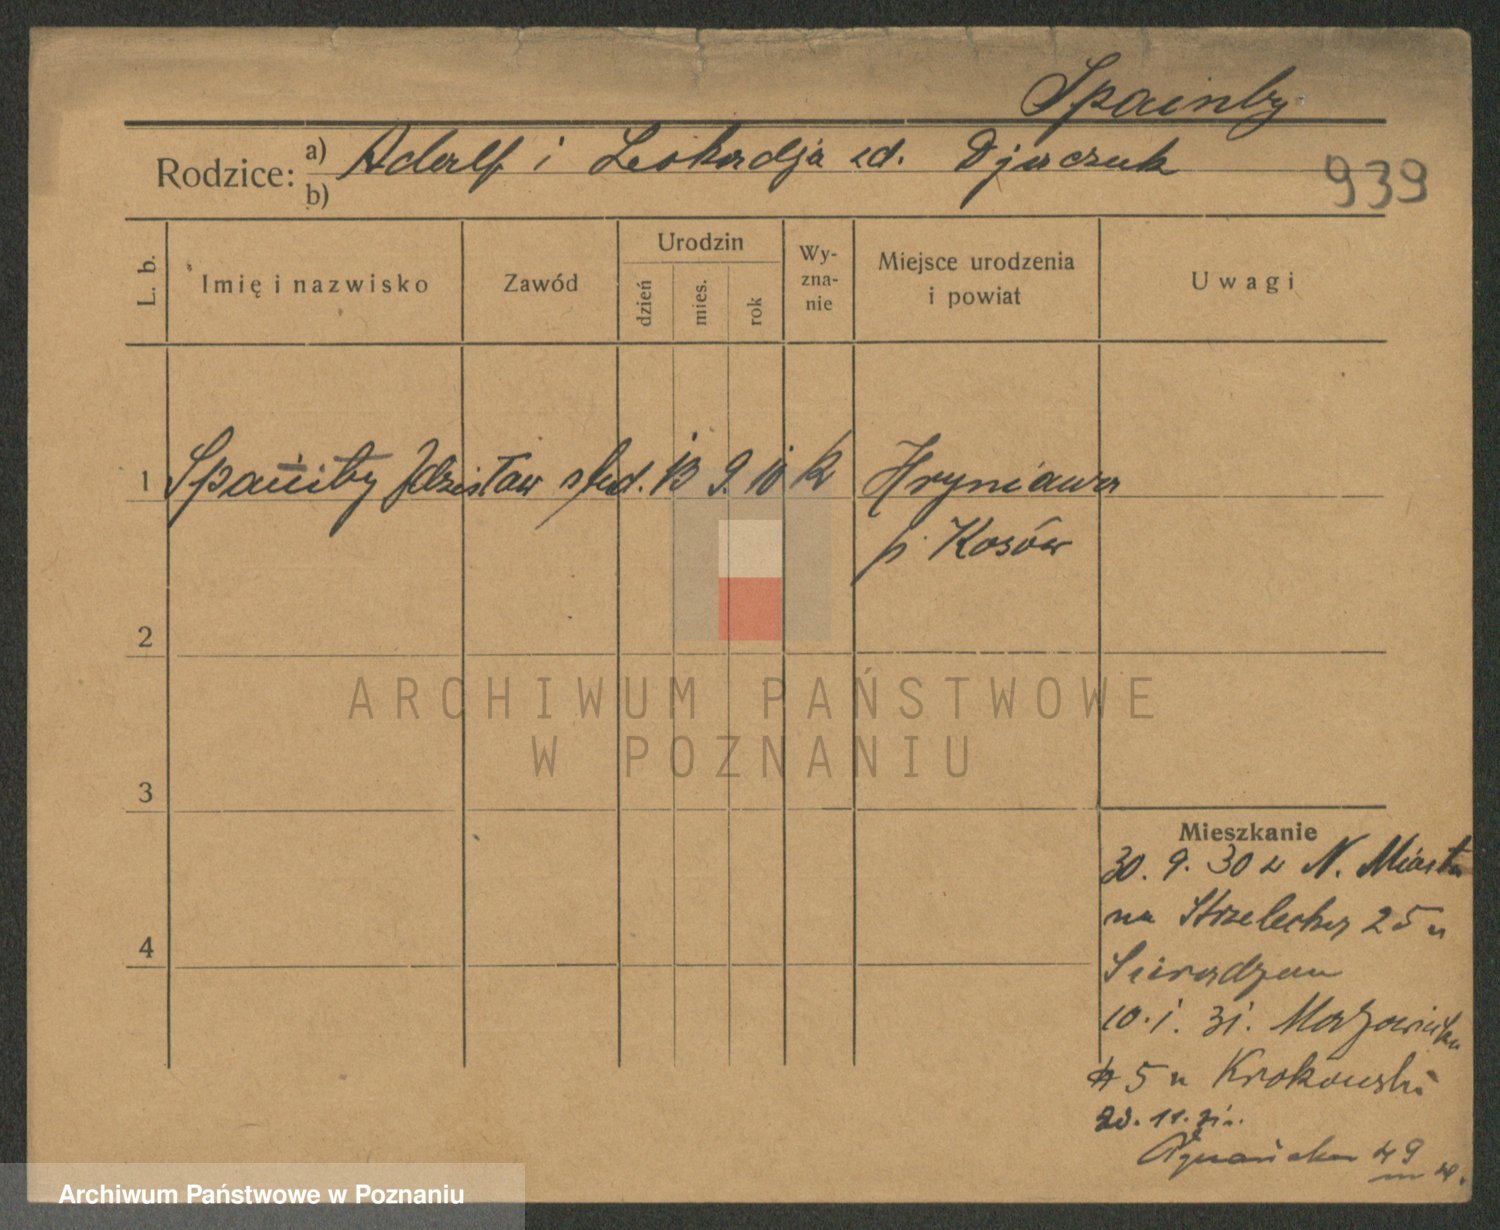 Spainby
Rodzice: a) Adolf i Leokadja zd. Djaczuk
b)
939
L. b.
Imię i nazwisko
Zawód
Urodzin
dzień
mies.
rok
Wy-
zna-
nie
Miejsce urodzenia
i powiat
Uwagi
1 Zdzisław stud. 13 9. 10 k Hryniawa
p. Kosów
2
3
4
ARCHIWUM PAŃSTWOWE
W POZNANIU
Mieszkanie
30. 9. 30 z N. Miasta
na Strzelecka 25 u
10. 1. 31. Mazowiecka
45 u Krakowski
11. 31.
49
Archiwum Państwowe w Poznaniu